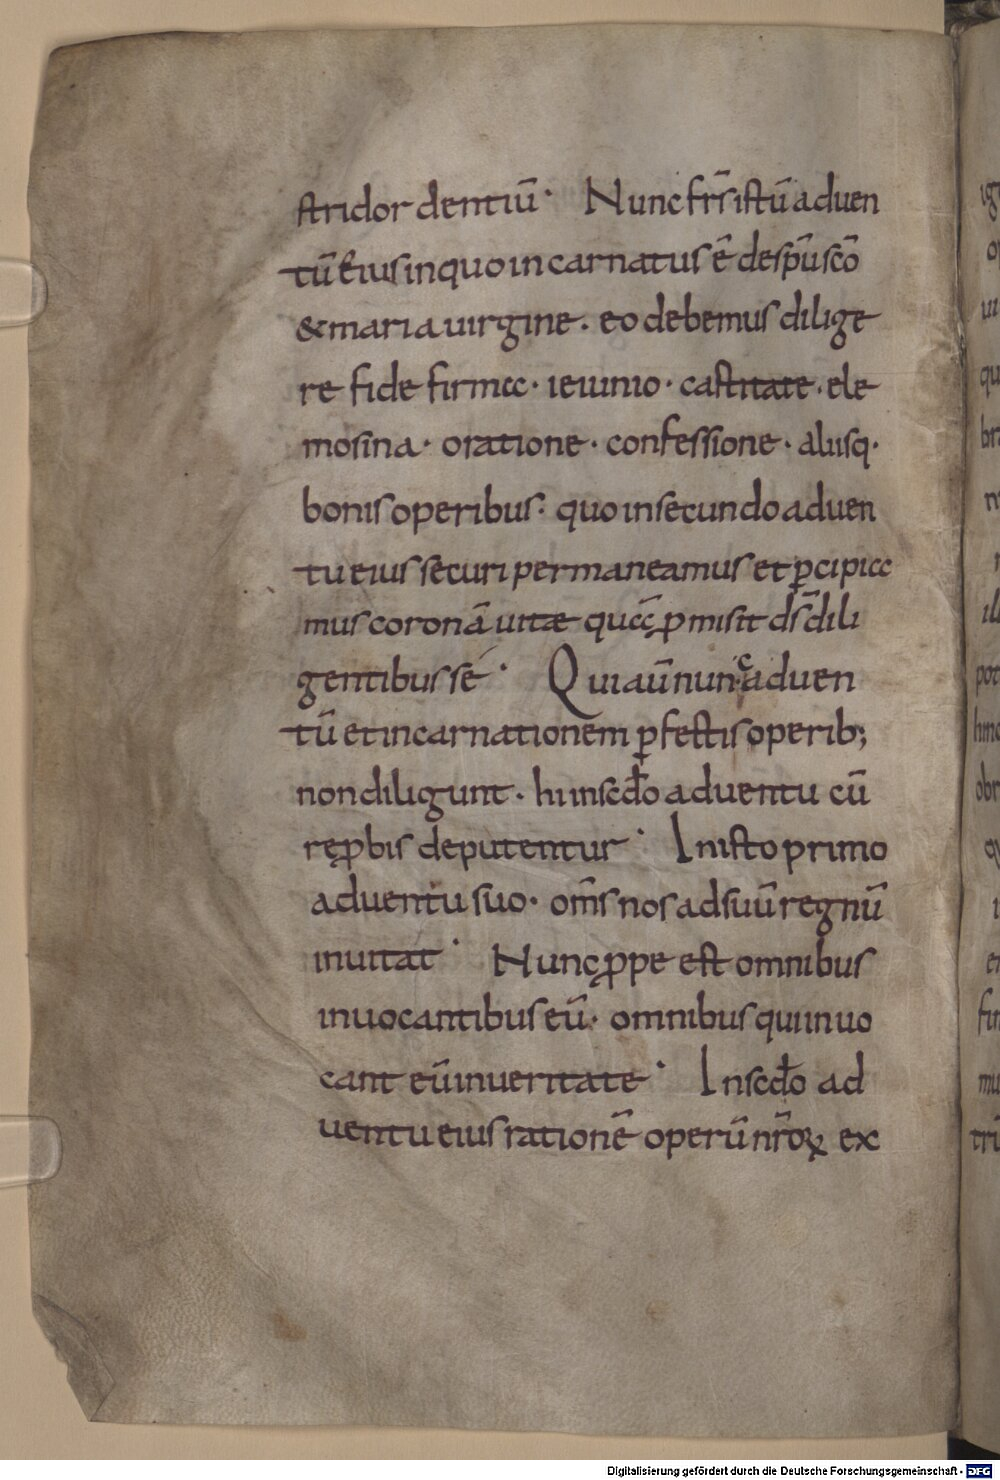 stridor dentiū· Nunc frs̄ istū aduen
tū eius in quo incarnatus ē de spū scō
& maria uirgine· eo debemus dilige
re fide firma· ieiunio· castitate· ele
mosina· oratione· confessione· aliisq·
bonis operibus· quo in secundo aduen
tu eius securi permaneamus et ꝑcipia
mus coronā uitae quā ꝓmisit ds̄ dili
gentibus se· Qui aū nunc aduen
tū et incarnationem ꝑfectis operib;
non diligunt· hi in scdo aduentu cū
reꝓbis deputentur· In isto primo
aduentu suo· om̄s nos ad suū regnū
inuitat· Nunc ꝓpe est omnibus
inuocantibus eū· omnibus qui inuo
cant eū in ueritate· In scdo ad
uentu eius rationē operū nr̄oꝝ ex
Digitalisierung gefördert durch die Deutsche Forschungsgemeinschaft - DFG